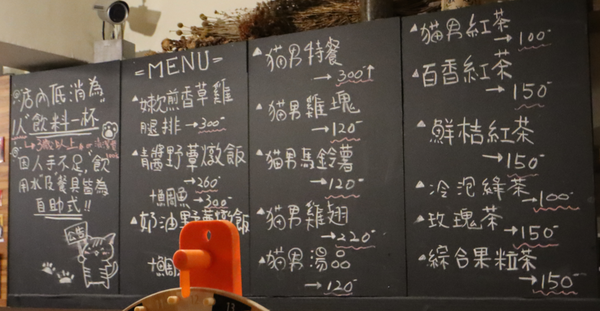 店內低消為
1人飲料一杯
因人手不足,飲
用水及餐具皆為
自助式!!
公告
=MENU=
嫩煎香草雞
腿排→300-
青醬野蕈燉飯
→260-
+鯛魚→300-
奶油野蕈燉飯
+鯛
貓男特餐
→300↑
貓男雞塊
→120-
貓男馬鈴薯
→120-
貓男雞翅
→220-
貓男湯品
→120-
貓男紅茶
→100-
百香紅茶
→150-
鮮桔紅茶
→150-
冷泡綠茶
→100-
玫瑰茶
→150-
綜合果粒茶
→150-